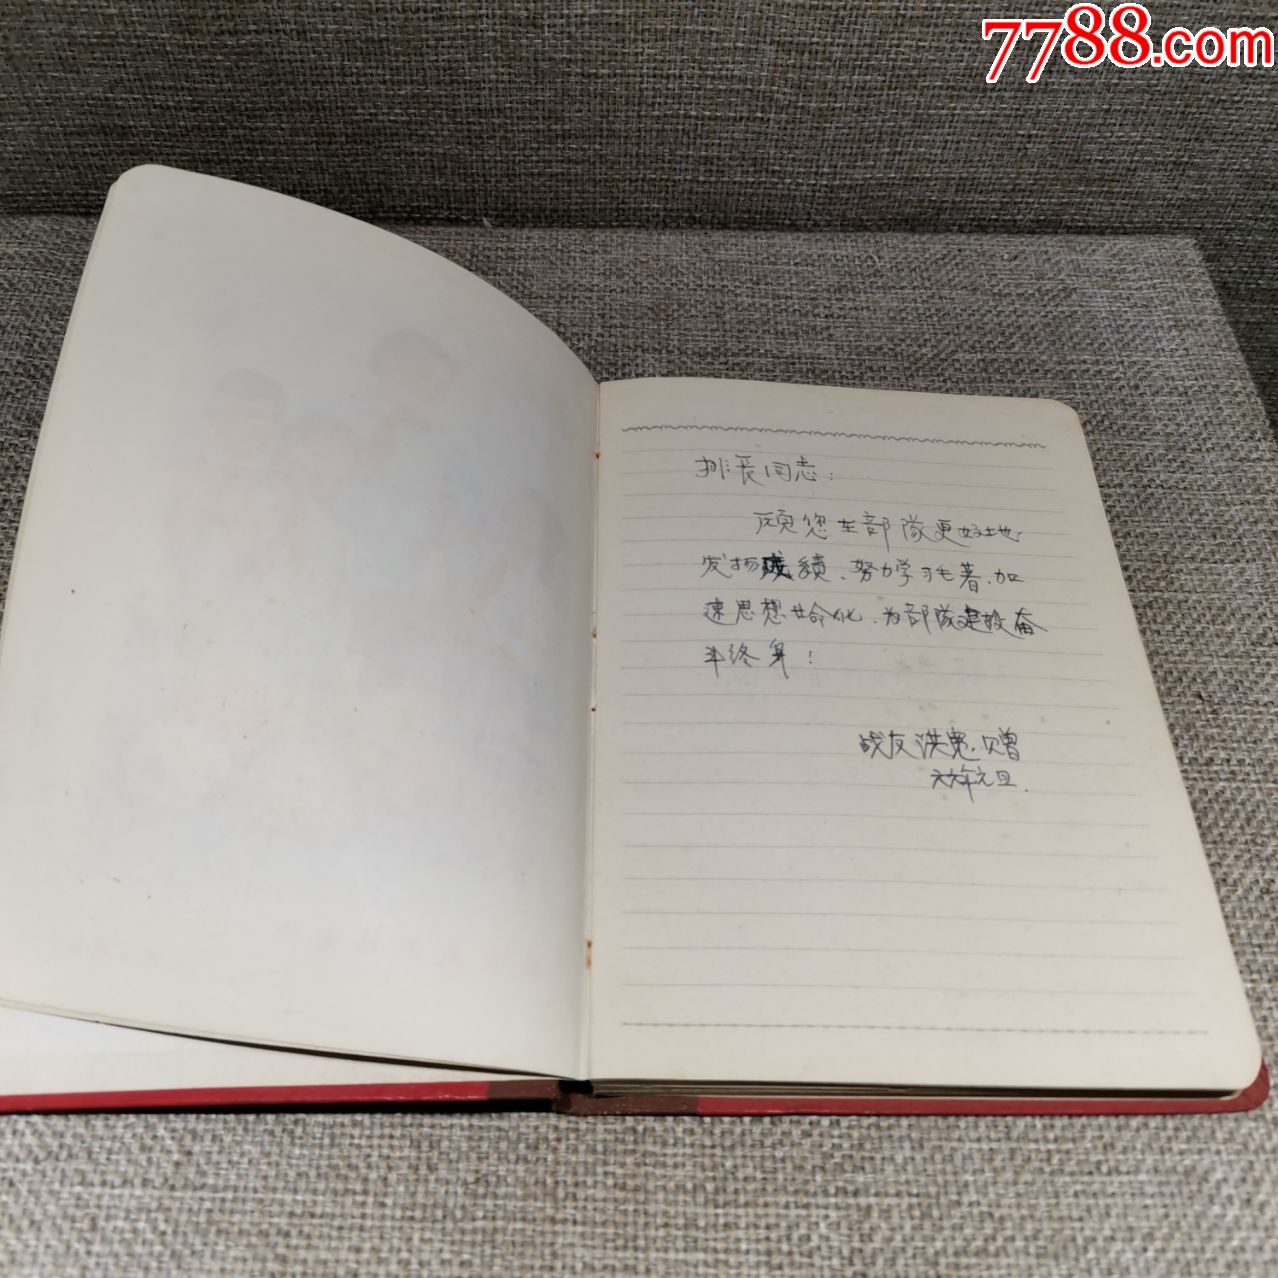 7788.com
排长同志：
愿您在部队更好地
发扬成绩、努力学习毛著、加
速思想革命化、为部队建设奋
斗终身！
战友洪宪.赠
六六年元旦.